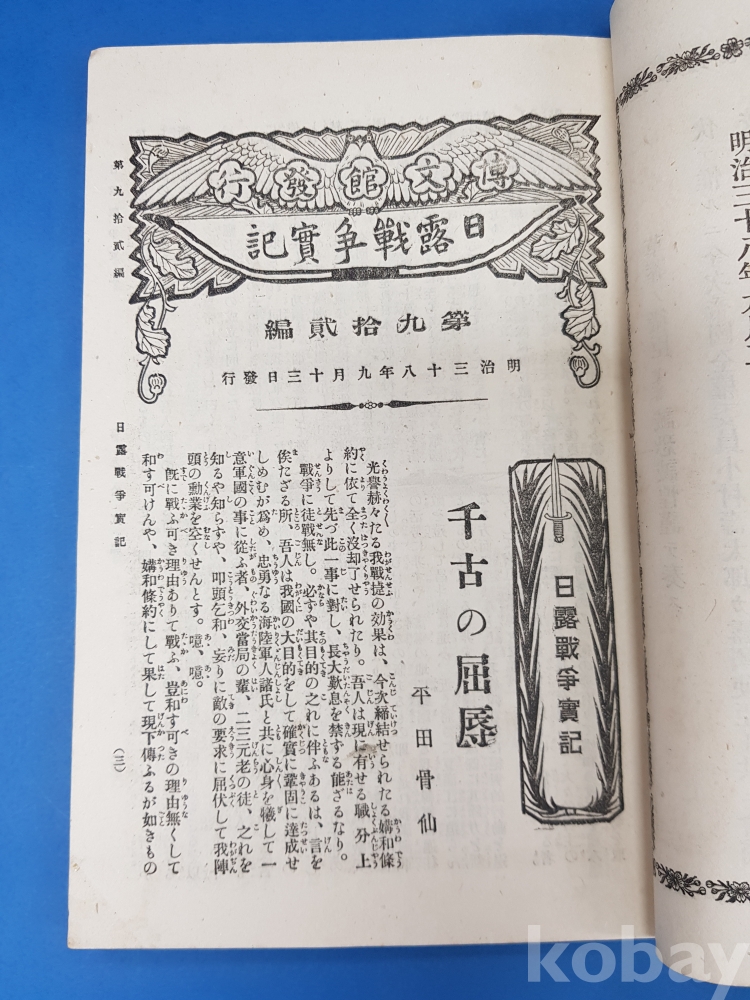 博文館發行
日露戰爭實記
第九拾貳編
明治三十八年九月十三日發行
日露戰爭實記
千古の屈辱
平田骨仙
光譽赫々たる我戰捷の効果は、今次締結せられたる媾和條
約に依て全く沒却了せられたり。吾人は現に有せる職分上
よりして先づ此一事に對し、長大歎息を禁ずる能ざるなり。
戰爭に徒戰無し。必ずや其目的の之れに伴ふあるは、言を
俟たざる所、吾人は我國の大目的をして確實に鞏固に達成せ
しめむが爲め、忠勇なる海陸軍人諸氏と共に心身を犧して一
意軍國の事に從ふ者、外交當局の輩、二三元老の徒、之れを
知るや知らすや、叩頭乞和、妄りに敵の要求に屈伏して我陣
頭の勳業を空くせんとす。噫、噫。
既に戰ふ可き理由ありて戰ふ、豈和す可きの理由無くして
和す可けんや、媾和條約にして果して現下傳ふるが如きもの
第九拾貳編
日露戰爭實記
(三)
明治三十八年九月
kobay